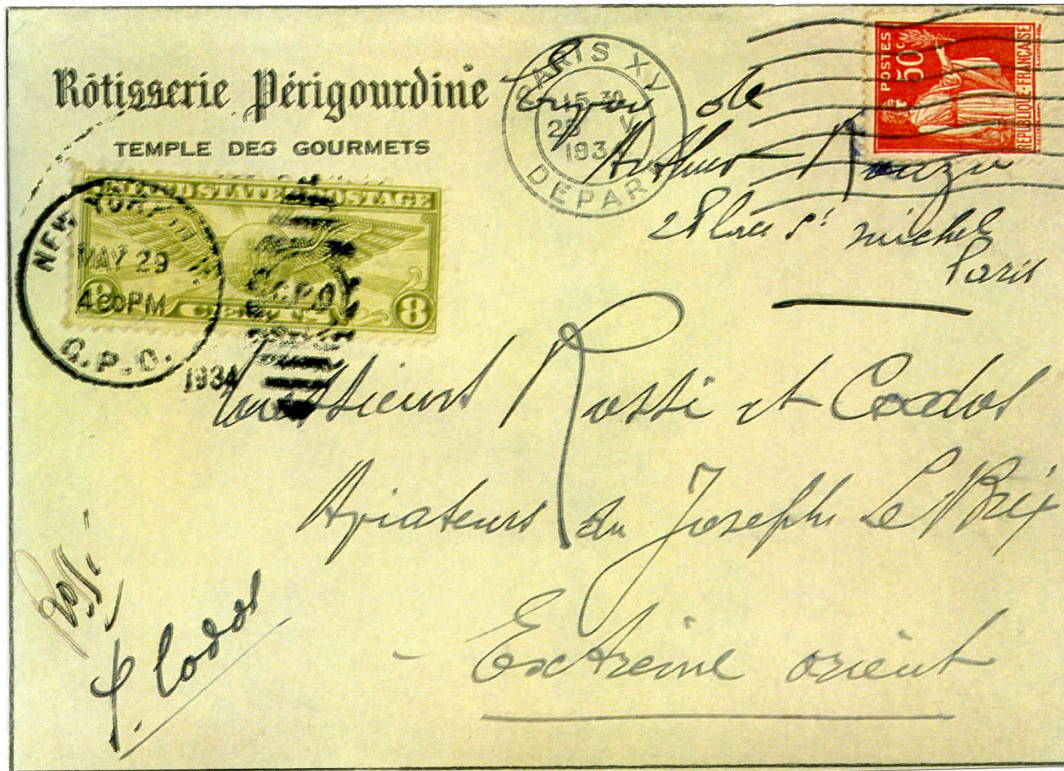 Rôtisserie Périgourdine
TEMPLE DES GOURMETS
PARIS XV
15 30
25 V
1934
DEPART
POSTES
50c
REPUBLIQUE FRANÇAISE
Envoi de
Arthur
2 Place St Michel
Paris
UNITED STATES POSTAGE
8 CENTS 8
NEW YORK
MAY 29
430PM
G.P.O.
1934
Messieurs Rossi et Codos
Aviateurs du Joseph Le Brix
Extrême orient
Rossi
P. Codos